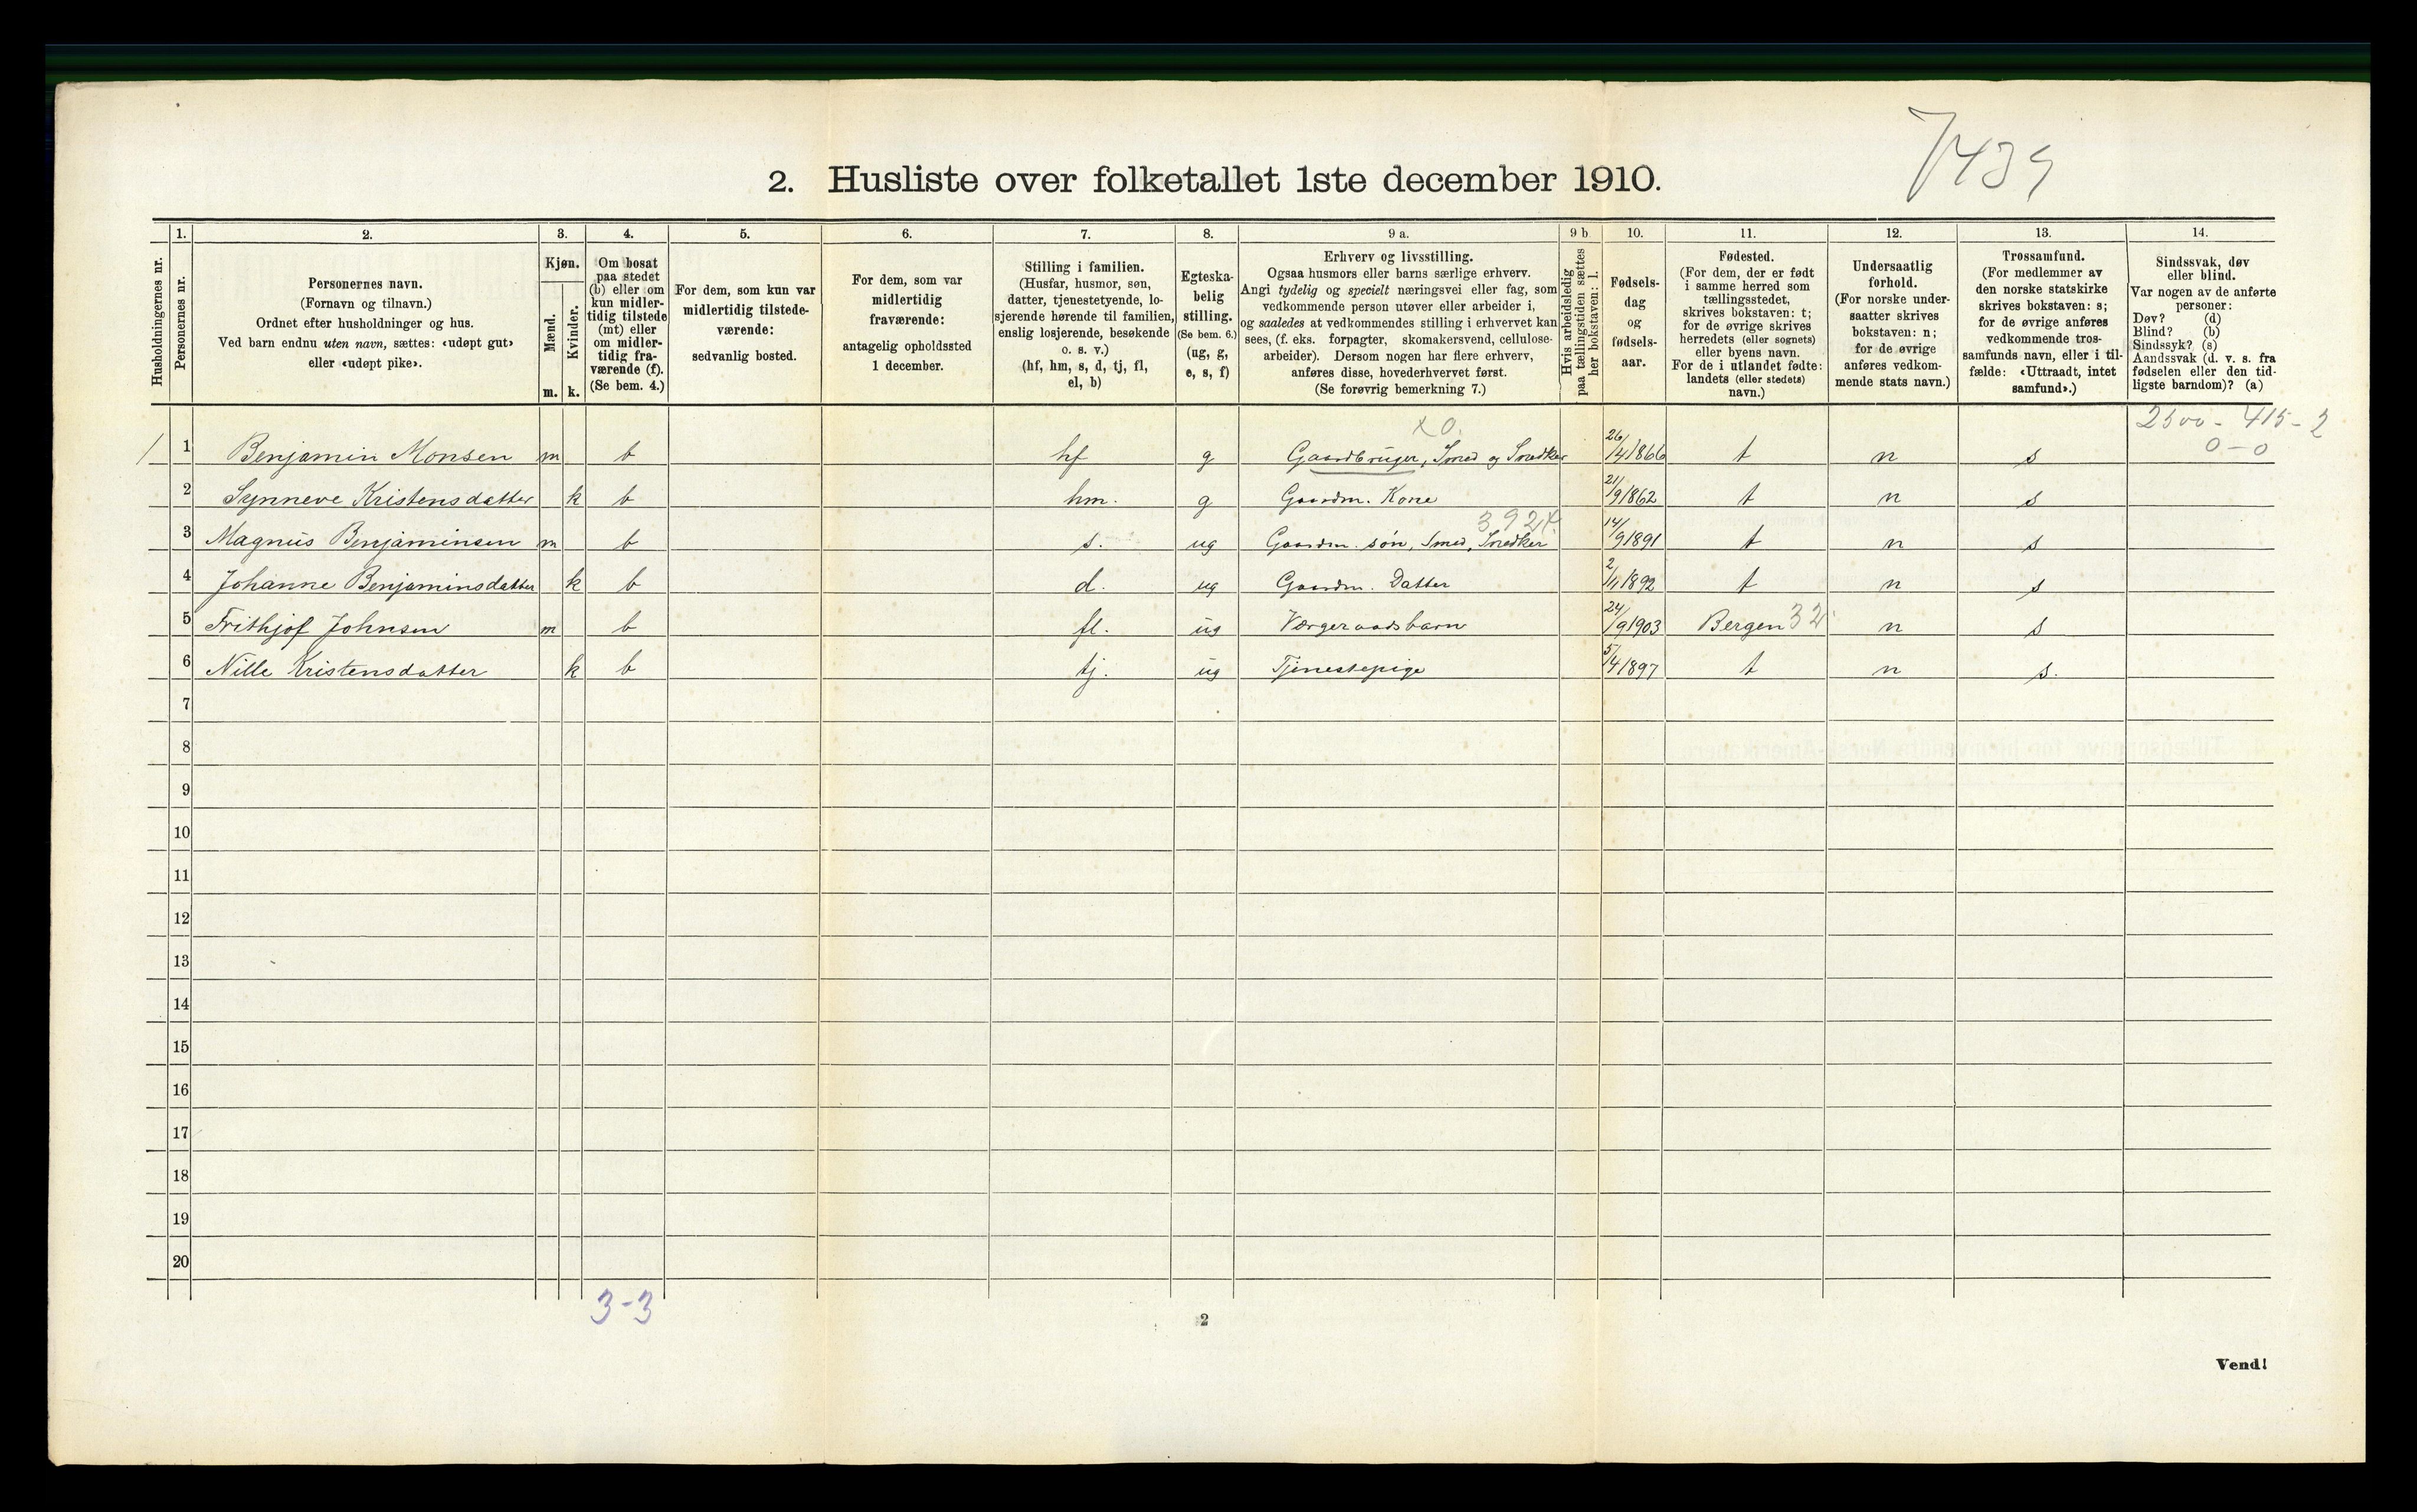 7439
2. Husliste over folketallet 1ste december 1910.
Husholdningernes nr.
1.
Personernes nr.
2.
Personernes navn.
(Fornavn og tilnavn.)
Ordnet efter husholdninger og hus.
Ved barn endnu uten navn, sættes: «udøpt gut»
eller «udøpt pike».
3.
Kjøn.
Mænd.
Kvinder.
m. k.
4.
Om bosat
paa stedet
(b) eller om
kun midler-
tidig tilstede
(mt) eller
om midler-
tidig fra-
værende (f).
(Se bem. 4.)
5.
For dem, som kun var
midlertidig tilstede-
værende:
sedvanlig bosted.
6.
For dem, som var
midlertidig
fraværende:
antagelig opholdssted
1 december.
7.
Stilling i familien.
(Husfar, husmor, søn,
datter, tjenestetyende, lo-
sjerende hørende til familien,
enslig losjerende, besøkende
o. s. v.)
(hf, hm, s, d, tj, fl,
el, b)
8.
Egteska-
belig
stilling.
(Se bem. 6.)
(ug, g,
e, s, f)
9 a.
Erhverv og livsstilling.
Ogsaa husmors eller barns særlige erhverv.
Angi tydelig og specielt næringsvei eller fag, som
vedkommende person utøver eller arbeider i,
og saaledes at vedkommendes stilling i erhvervet kan
sees, (f. eks. forpagter, skomakersvend, cellulose-
arbeider). Dersom nogen har flere erhverv,
anføres disse, hovederhvervet først.
(Se forøvrig bemerkning 7.)
9 b
Hvis arbeidsledig
paa tællingstiden sættes
her bokstaven: l.
10.
Fødsels-
dag
og
fødsels-
aar.
11.
Fødested.
(For dem, der er født
i samme herred som
tællingsstedet,
skrives bokstaven: t;
for de øvrige skrives
herredets (eller sognets)
eller byens navn.
For de i utlandet fødte:
landets (eller stedets)
navn.)
12.
Undersaatlig
forhold.
(For norske under-
saatter skrives
bokstaven: n;
for de øvrige
anføres vedkom-
mende stats navn.)
13.
Trossamfund.
(For medlemmer av
den norske statskirke
skrives bokstaven: s;
for de øvrige anføres
vedkommende tros-
samfunds navn, eller i til-
fælde: «Uttraadt, intet
samfund».)
14.
Sindssvak, døv
eller blind.
Var nogen av de anførte
personer:
Døv? (d)
Blind? (b)
Sindssyk? (s)
Aandssvak (d. v. s. fra
fødselen eller den tid-
ligste barndom)? (a)
x 0. 2500 - 415 - 2
0 - 0
1 1 Benjamin Monsen m b hf g Gaardbruger, Smed og Snedker 26/4 1866 t n s
2 Synneve Kristensdatter k b hm. g Gaardm. Kone 21/9 1862 t n s
3 Magnus Benjaminsen m b s. ug Gaardm. søn, Smed, Snedker 14/9 1891 t n s
4 Johanne Benjaminsdatter k b d. ug Gaardm. Datter 2/11 1892 t n s
5 Frithjof Johnsen m b fl. ug Værgeraadsbarn 24/9 1903 Bergen 32 n s
6 Nille Kristensdatter k b tj. ug Tjenestepige 5/4 1897 t n s.
7
8
9
10
11
12
13
14
15
16
17
18
19
20
3-3
2
Vend!